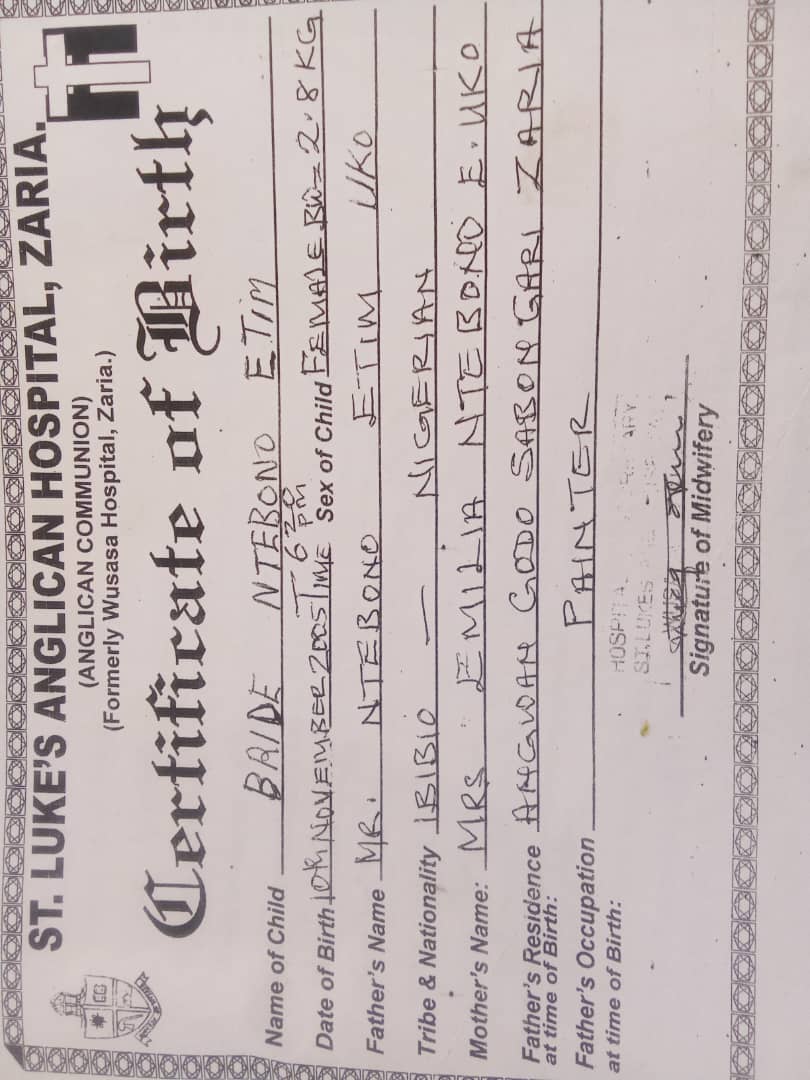 ST. LUKE'S ANGLICAN HOSPITAL, ZARIA.
(ANGLICAN COMMUNION)
(Formerly Wusasa Hospital, Zaria.)
Certificate of Birth
Name of Child BRIDE NTEBONO ETIM
Date of Birth 10th NOVEMBER 2005 TIME 6 20 PM Sex of Child FEMALE BW= 2.8KG
Father's Name MR. NTEBONO ETIM UKO
Tribe & Nationality IBIBIO — NIGERIAN
Mother's Name: MRS EMILIA NTEBONO E. UKO
Father's Residence ANGWAN GODO SABON GARI ZARIA
at time of Birth:
Father's Occupation PAINTER
at time of Birth:
HOSPITAL
ST. LUKES
Signature of Midwifery